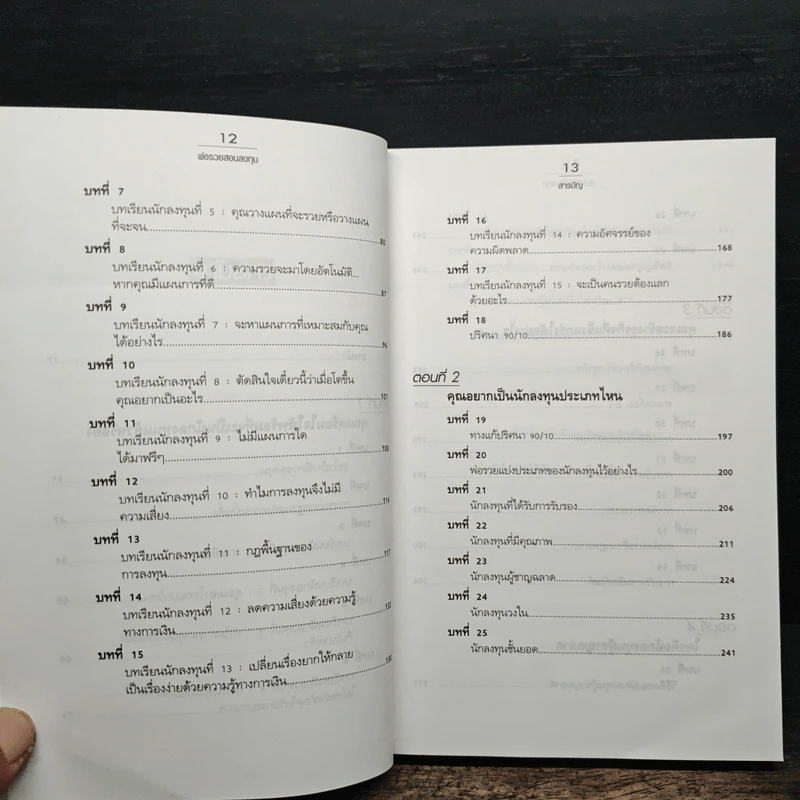 12
พ่อรวยสอนลงทุน
บทที่ 7
บทเรียนนักลงทุนที่ 5 : คุณวางแผนที่จะรวยหรือวางแผน
ที่จะจน 80
บทที่ 8
บทเรียนนักลงทุนที่ 6 : ความรวยจะมาโดยอัตโนมัติ...
หากคุณมีแผนการที่ดี 87
บทที่ 9
บทเรียนนักลงทุนที่ 7 : จะหาแผนการที่เหมาะสมกับคุณ
ได้อย่างไร 94
บทที่ 10
บทเรียนนักลงทุนที่ 8 : ตัดสินใจเดี๋ยวนี้ว่าเมื่อโตขึ้น
คุณอยากเป็นอะไร 101
บทที่ 11
บทเรียนนักลงทุนที่ 9 : ไม่มีแผนการใด
ได้มาฟรีๆ 108
บทที่ 12
บทเรียนนักลงทุนที่ 10 : ทำไมการลงทุนจึงไม่มี
ความเสี่ยง 114
บทที่ 13
บทเรียนนักลงทุนที่ 11 : กฎพื้นฐานของ
การลงทุน
บทที่ 14
บทเรียนนักลงทุนที่ 12 : ลดความเสี่ยงด้วยความรู้
ทางการเงิน
บทที่ 15
บทเรียนนักลงทุนที่ 13 : เปลี่ยนเรื่องยากให้กลาย
เป็นเรื่องง่ายด้วยความรู้ทางการเงิน
13
สารบัญ
บทที่ 16
บทเรียนนักลงทุนที่ 14 : ความอัศจรรย์ของ
ความผิดพลาด 168
บทที่ 17
บทเรียนนักลงทุนที่ 15 : จะเป็นคนรวยต้องแลก
ด้วยอะไร 177
บทที่ 18
ปริศนา 90/10 186
ตอนที่ 2
คุณอยากเป็นนักลงทุนประเภทไหน
บทที่ 19
ทางแก้ปริศนา 90/10 197
บทที่ 20
พ่อรวยแบ่งประเภทของนักลงทุนไว้อย่างไร 200
บทที่ 21
นักลงทุนที่ได้รับการรับรอง 206
บทที่ 22
นักลงทุนที่มีคุณภาพ 211
บทที่ 23
นักลงทุนผู้ชาญฉลาด 224
บทที่ 24
นักลงทุนวงใน 235
บทที่ 25
นักลงทุนชั้นยอด 241